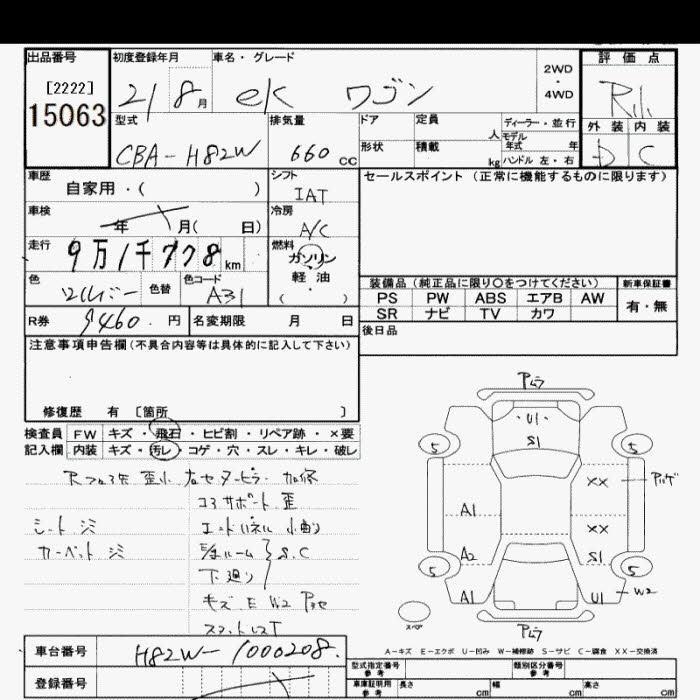 出品番号
[2222]
15063
初度登録年月
21 8 月
車名・グレード
ek ワゴン
2WD
・
4WD
評価点
R
外装 内装
D C
型式
CBA-H82W
排気量
660 cc
ドア 定員 人
形状 積載 kg
ディーラー・並行
モデル年式 年
ハンドル 左・右
車歴
自家用・( )
シフト
IAT
車検
年 月( 日)
冷房
A/C
走行
9万1千778 km
燃料
ガソリン
軽油
・
( )
色
色替
色コード
A31
R券 9460. 円
名変期限 月 日
セールスポイント (正常に機能するものに限ります)
装備品 (純正品に限り○をつけてください)
PS PW ABS エアB AW
SR ナビ TV カワ
新車保証書
有・無
後日品
注意事項申告欄(不具合内容等は具体的に記入して下さい)
修復歴 有 〔箇所 〕
検査員 FW キズ・飛石・ヒビ割・リペア跡・×要
記入欄 内装 キズ・汚レ・コゲ・穴・スレ・キレ・破レ
コアサポート 歪
シート ジミ
エンドパネル 小曲り
カーペット ジミ
S.C
下廻り
キズ E W2
アムラ
U1
S1
5 5
XX
A1
XX
A2 S1
5 5
A1 U1 W2
スペア
アムラ
A-キズ E-エクボ U-凹み W-補修跡 S-サビ C-腐食 XX-交換済
車台番号 H82W-1000208.
登録番号
型式指定番号 参考
類別区分番号 参考
車庫証明用 参考
長さ cm 幅 cm 高さ cm